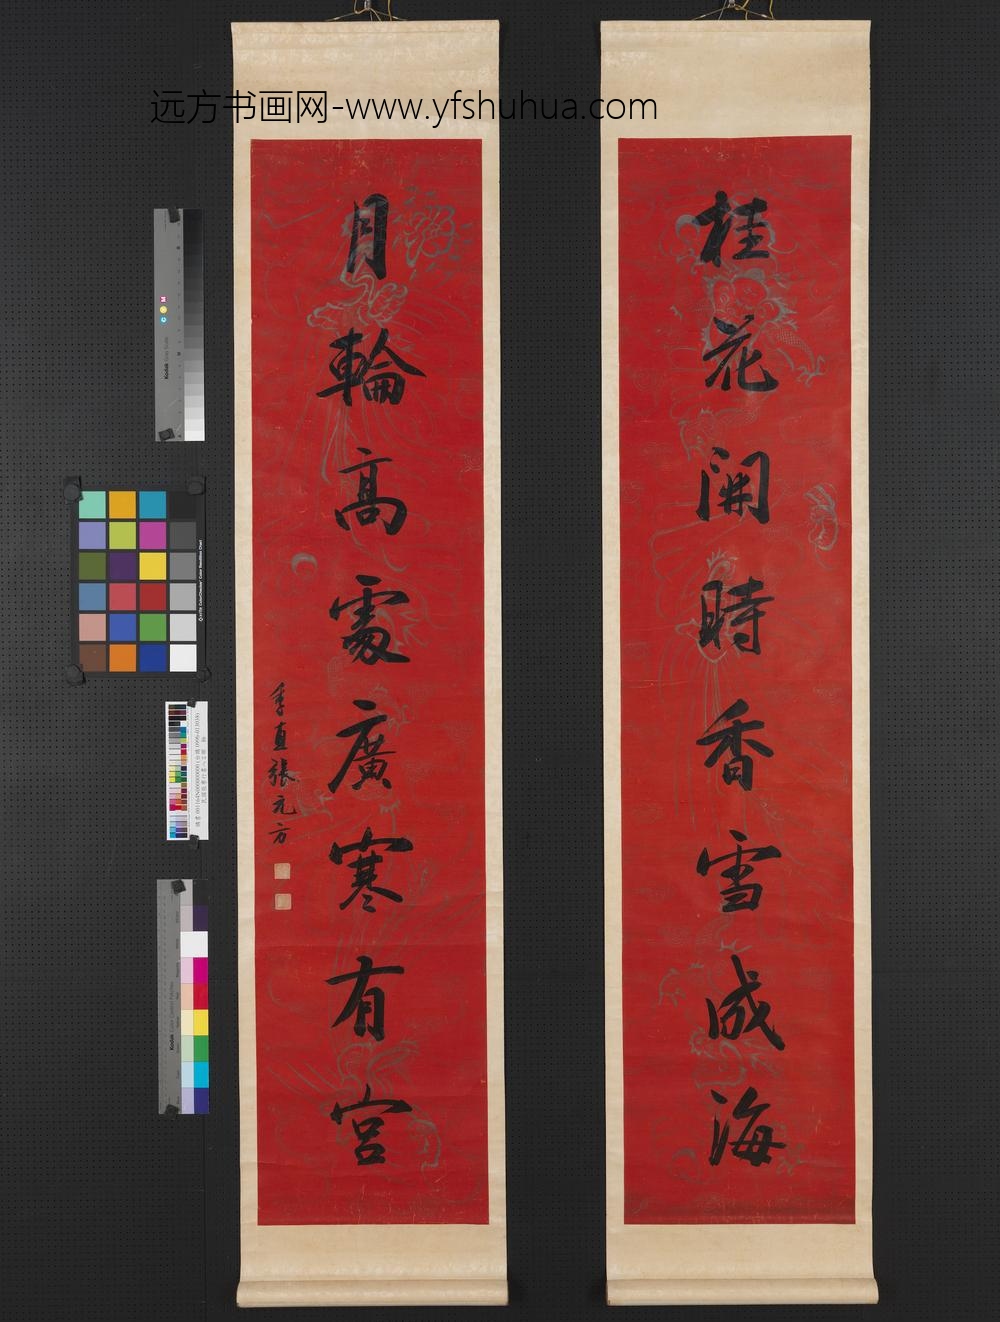 远方书画网-www.yfshuhua.com
桂花開時香雪成海
月輪高處廣寒有宮
季直張元方
Kodak